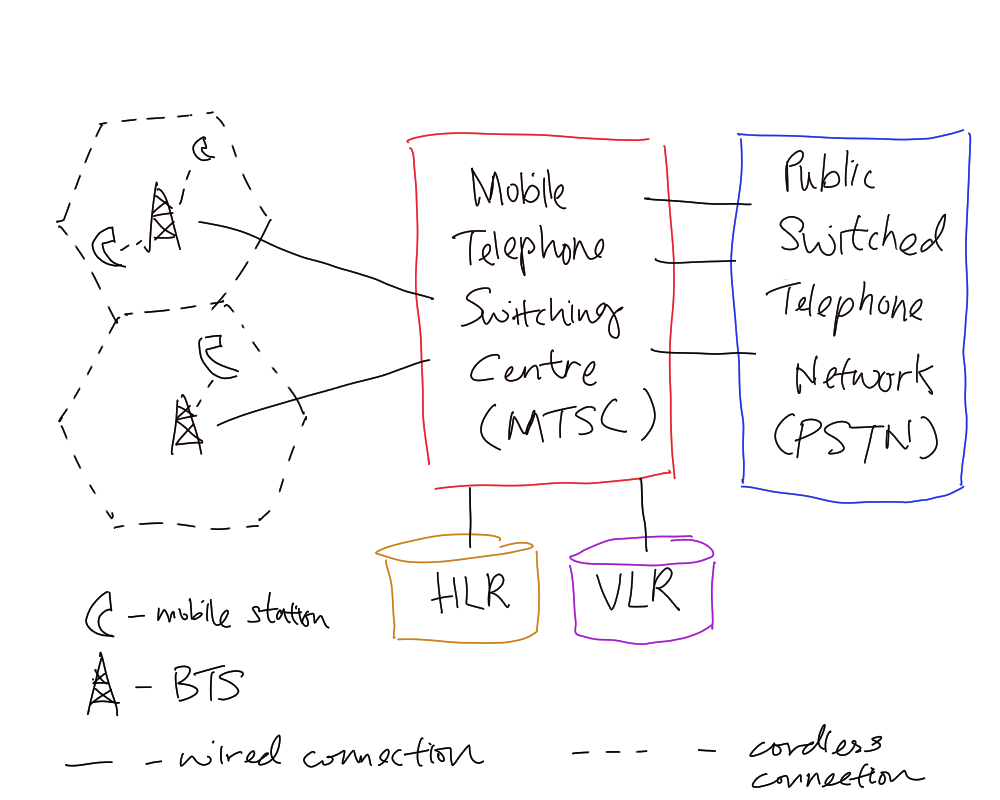 Mobile
Telephone
Switching
Centre
(MTSC)
Public
Switched
Telephone
Network
(PSTN)
HLR
VLR
- mobile station
- BTS
- wired connection
- cordless
connection